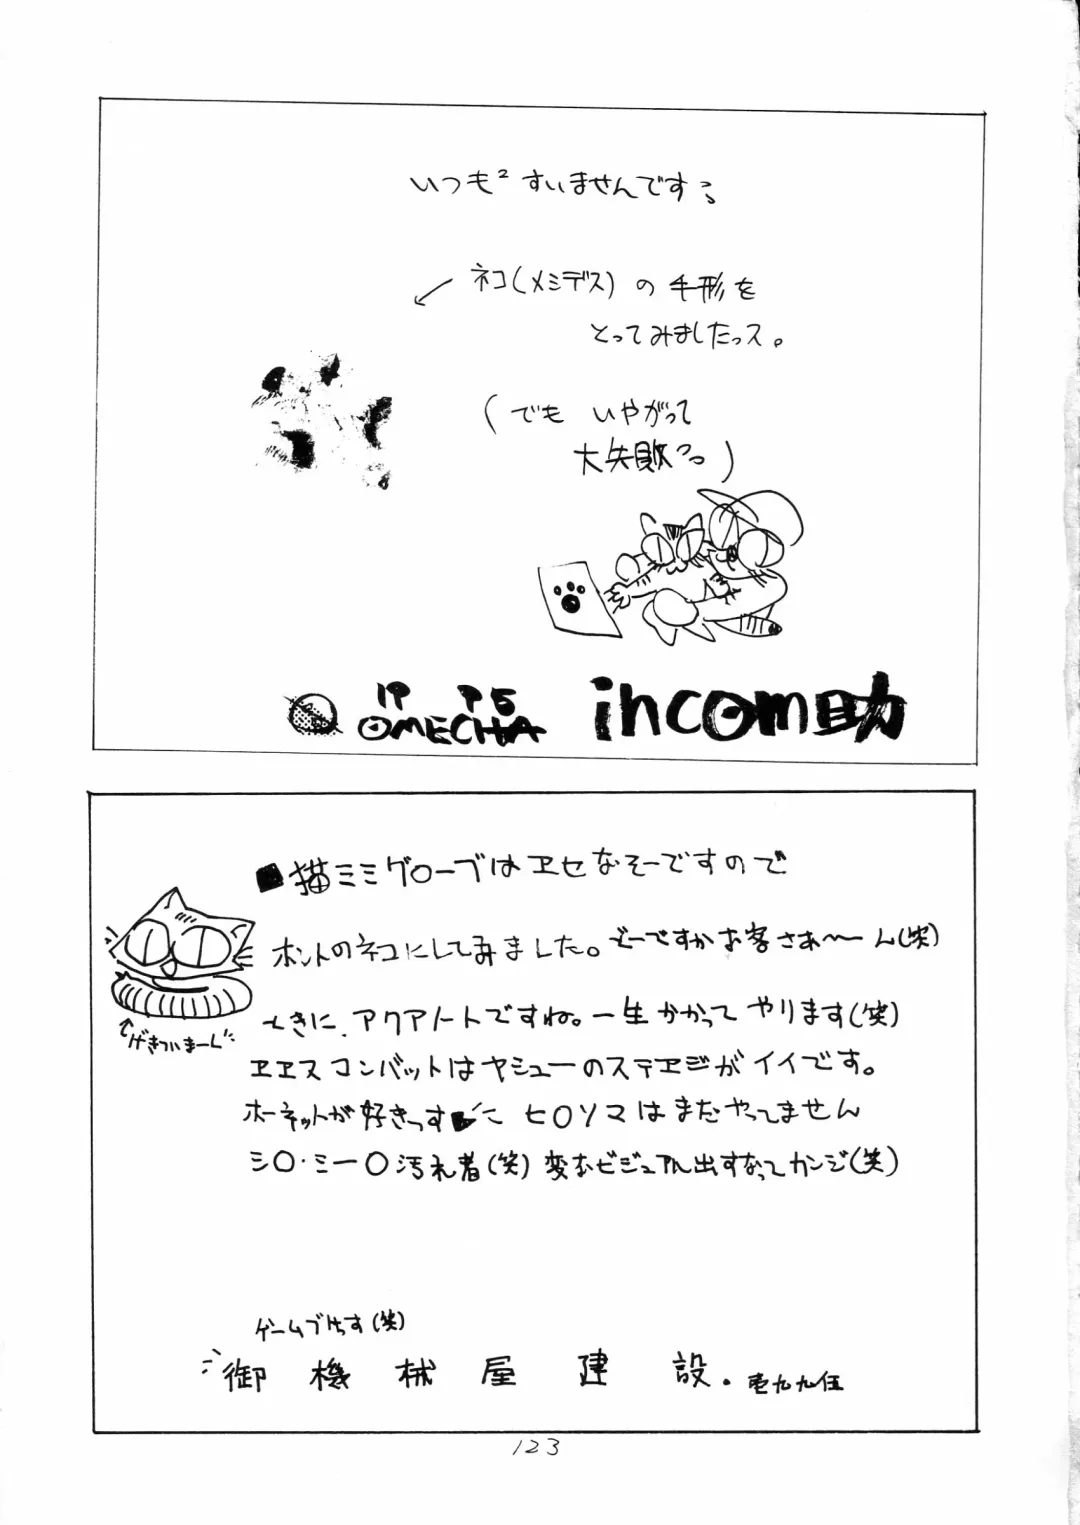 いつも²すいませんですぅ
ネコ(メミデス)の手形を
とってみましたっス。
(でもいやがって
大失敗っっ)
19 95
OMECHA
incom助
■猫ミミグローブはヱセなそーですので
ホントのネコにしてみました。どーですかお客さあ〜〜ん(笑)
ときに、アクアノートですね。一生かかってやります(笑)
ヱヱスコンバットはヤシューのステヱジがイイです。
ホーネットが好きっす
ヒロソマはまだやってません
シ〇・ミー〇汚れ者(笑)変なビジュアル出すなってカンジ(笑)
げきついまーく
ゲームプけちす(笑)
御機械屋建設.壱九九伍
123